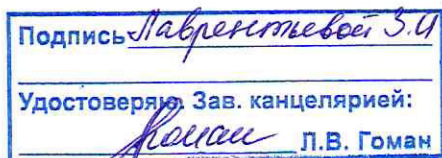 Подпись Лаврентьевой З.И
Удостоверяю. Зав. канцелярией:
Гоман Л.В. Гоман